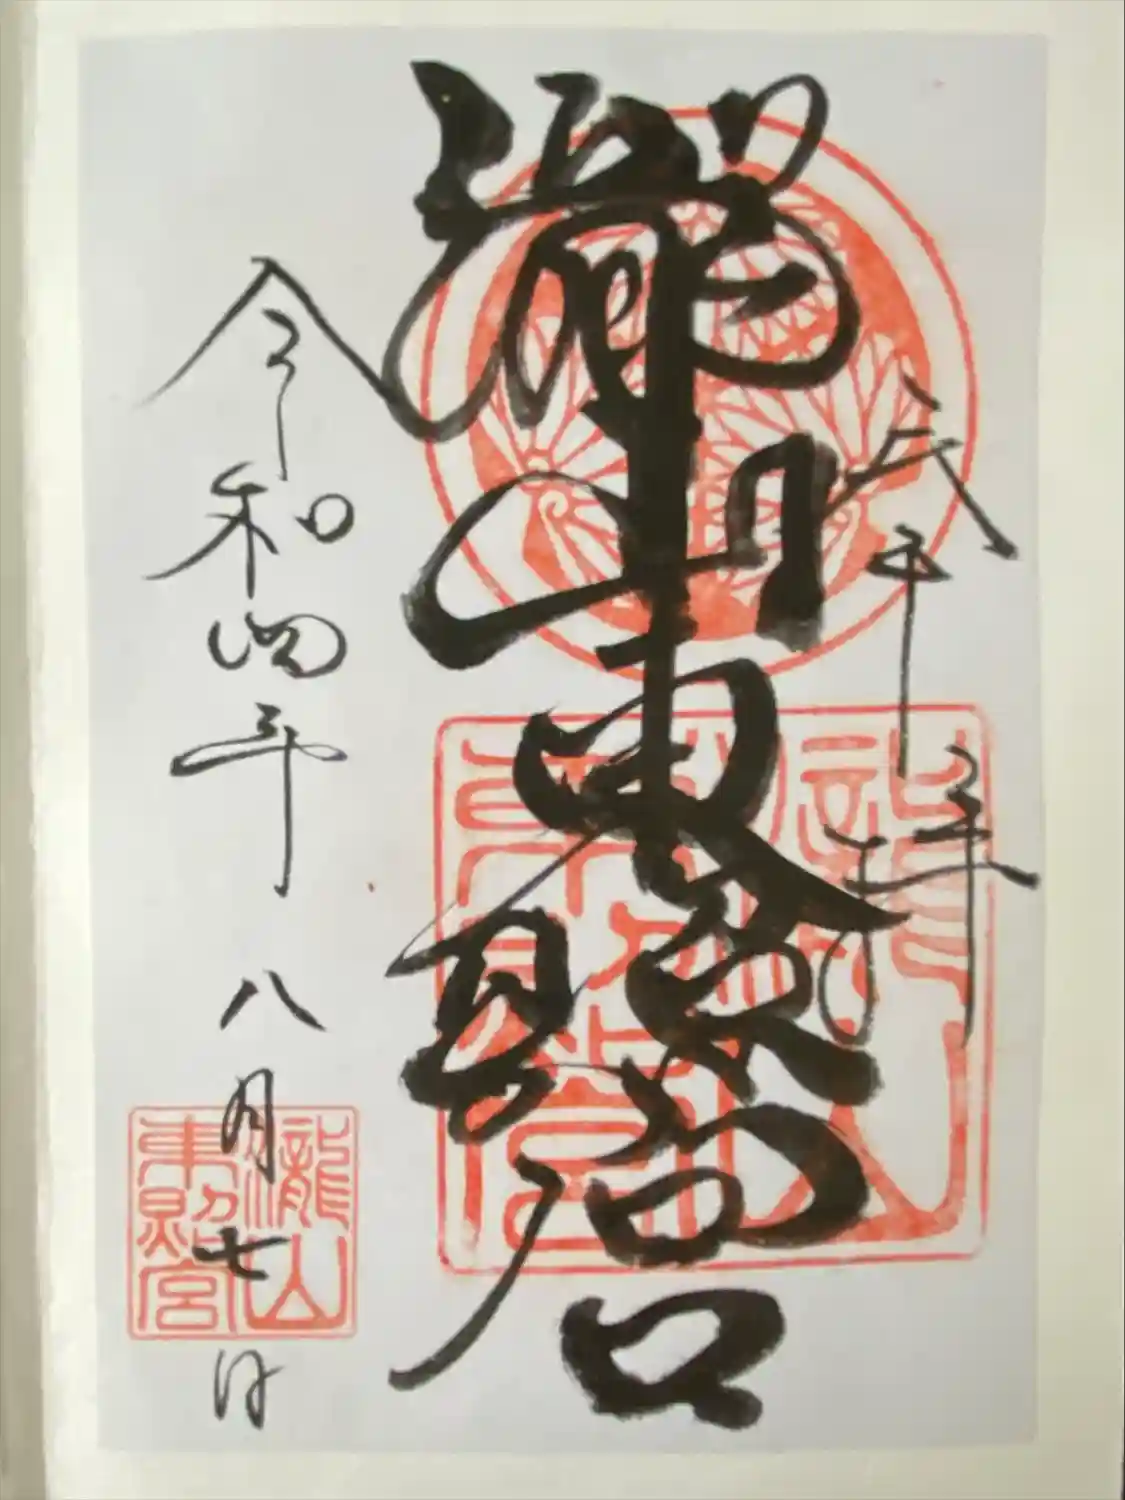 奉拝
瀧山東照宮
令和四年八月七日
瀧山
東照宮
瀧山
東照宮